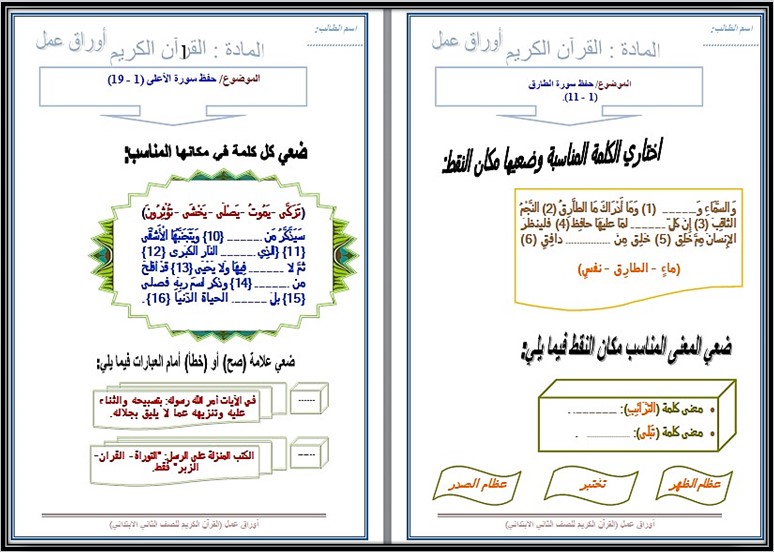 اسم الطالب:
أوراق عمل
المادة : القرآن الكريم
الموضوع/ حفظ سورة الطارق
(1 - 11).
اختاري الكلمة المناسبة وضعيها مكان النقط:
وَالسَّمَاءِ وَ______ (1) وَمَا أَدْرَاكَ مَا الطَّارِقُ (2) النَّجْمُ
الثاقِبُ (3) إن كل ______ لمَا عليهَا حافِظ (4) فلينظر
الإنسَان مِمَّ خلِق (5) خلِق مِن ............ دافِق (6)
(ماءٍ - الطارق - نفسٍ)
ضعي المعنى المناسب مكان النقط فيما يلي:
معنى كلمة (التَّرَائِبِ): ________.
معنى كلمة (تُبْلَى) : ________.
عظام الظهر
تختبر
عظام الصدر
أوراق عمل (القرآن الكريم للصف الثاني الابتدائي)
اسم الطالب:
أوراق عمل
المادة : القرآن الكريم
1
الموضوع/ حفظ سورة الأعلى (1 - 19)
ضعي كل كلمة في مكانها المناسب:
(تَزَكَّى - يَمُوتُ - يَصْلَى - يَخْشَى - تُؤْثِرُونَ)
سَيَذَّكَّرُ مَن ______ {10} وَيَتَجَنَّبُهَا الْأَشْقَى
{11} الَّذِي ______ النار الكبرى {12}
ثُمَّ لا ______ فِيهَا وَلا يَحْيَى {13} قد أفلح
من ______ {14} وذكر اسم ربه فصلى
{15} بل ______ الحياة الدنيا {16}.
ضعي علامة (صح) أو (خطأ) أمام العبارات فيما يلي:
في الآيات أمر الله رسوله: بتسبيحه والثناء
عليه وتنزيهه عما لا يليق بجلاله.
الكتب المنزلة على الرسل: "التوراة- القرآن-
الزبر" فقط.
أوراق عمل (القرآن الكريم للصف الثاني الابتدائي)